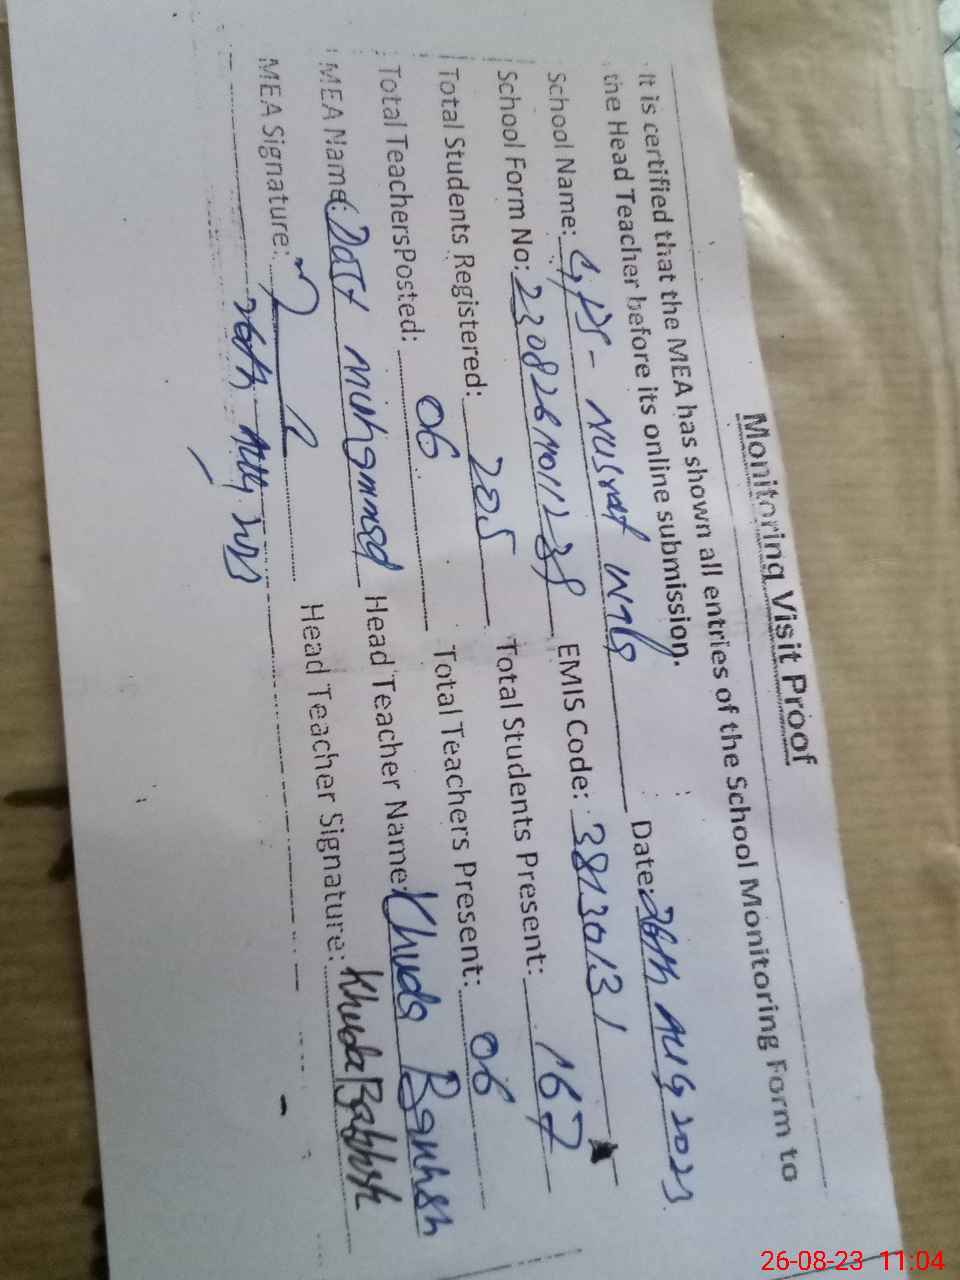 Monitoring Visit Proof
It is certified that the MEA has shown all entries of the School Monitoring Form to
the Head Teacher before its online submission.
Date: 26th Aug 2023
School Name: GPS - Nusrat Wala
School Form No: EMIS Code: 38130131
Total Students Registered: 205 Total Students Present: 167
Total Teachers Posted: 06 Total Teachers Present: 06
MEA Name: Datt Muhammad Head Teacher Name: Khuda Bakhsh
MEA Signature: Head Teacher Signature: Khuda Bakhsh
26th Aug 2023
26-08-23 11:04